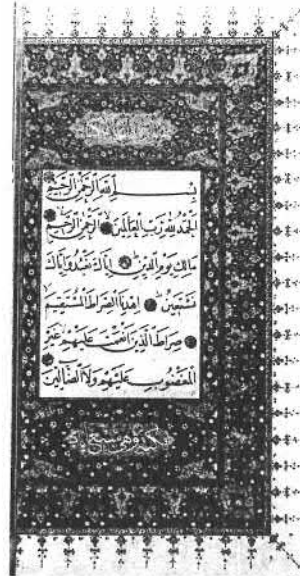 بِسْمِ اللهِ الرَّحْمٰنِ الرَّحِيمِ
اَلْحَمْدُ لِلهِ رَبِّ الْعَالَمِينَ الرَّحْمٰنِ الرَّحِيمِ
مَالِكِ يَوْمِ الدِّينِ اِيَّاكَ نَعْبُدُ وَاِيَّاكَ
نَسْتَعِينُ اِهْدِنَا الصِّرَاطَ الْمُسْتَقِيمَ
صِرَاطَ الَّذِينَ اَنْعَمْتَ عَلَيْهِمْ غَيْرِ
الْمَغْضُوبِ عَلَيْهِمْ وَلَا الضَّالِّينَ
مكية وهي سبع